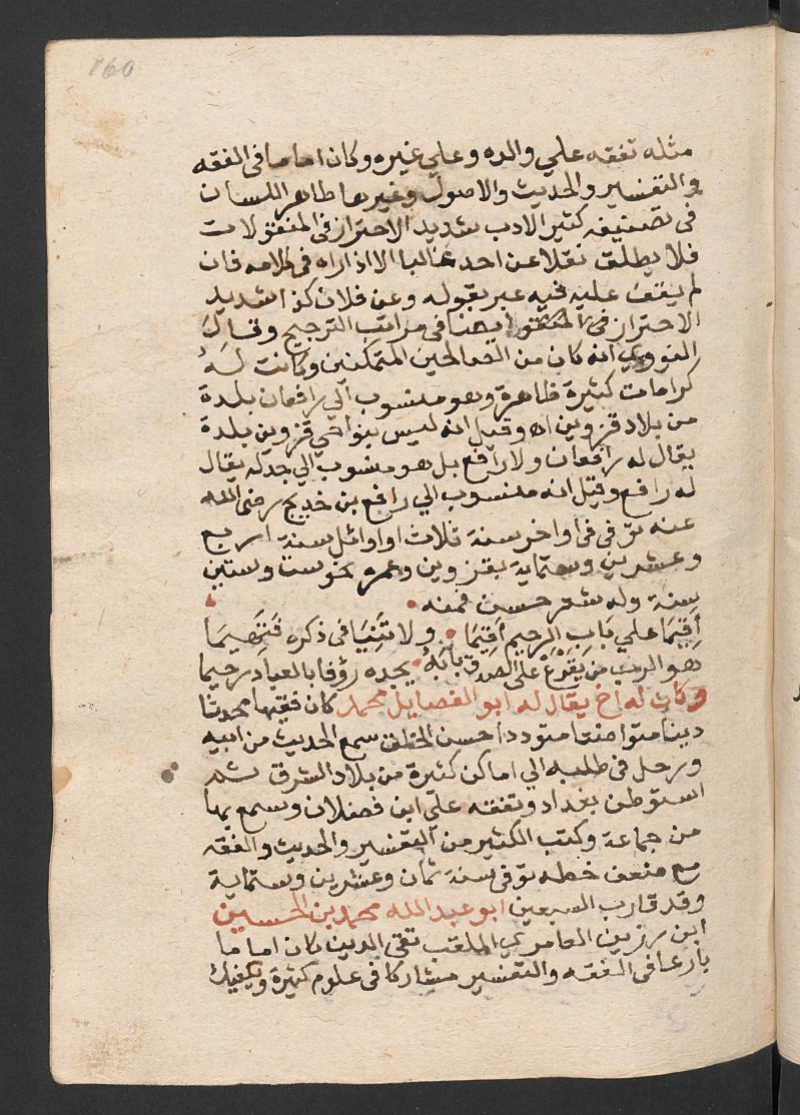 160
مثله تفقه علي والده وعلي غيره وكان اماما في الفقه
والتفسير والحديث والاصول وغيرها طاهر اللسان
في تصنيفه كثير الادب شديد الاحتراز في المنقولات
فلا يطلق نقلا عن احد غالبا الا اذا راه في كلامه فان
لم يقف عليه فيه عبر بقوله وعن فلان كذا شديد
الاحتراز في ايضا في مراتب الترجيح وقال
النووي انه كان من الصالحين المتمكنين وكانت له
كرامات كثيرة ظاهرة وهو منسوب الي رافعان بلدة
من بلاد قزوين اه وقيل انه ليس بنواحي قزوين بلدة
يقال له رافعان ولا رافع بل هو منسوب الي جد له يقال
له رافع وقيل انه منسوب الي رافع بن خديج رضي الله
عنه توفي في اواخر سنة ثلاث او اوائل سنة اربع
وعشرين وستماية بقزوين وعمره نحو ست وستين
سنة وله شعر حسن فمنه
أقيما علي باب الرحيم أقيما ولا تنيا في ذكره فتهيما
هو الرب من يقرع على الصدق بابه يجده رؤفا بالعباد رحيما
وكان له اخ يقال له ابو الفضايل محمد كان فقيها محدثا
دينا متواضعا متوددا حسن الخلق سمع الحديث من ابيه
ورحل في طلبه الي اماكن كثيرة من بلاد الشرق ثم
استوطن بغداد وتفقه علي ابن فضلان وسمع بها
من جماعة وكتب الكثير من التفسير والحديث والفقه
مع ضعف خطه توفي سنة ثمان وعشرين وستماية
وقد قارب السبعين ابو عبد الله محمد بن الحسين
ابن رزين العامري الملقب تقي الدين كان اماما
بارعا في الفقه والتفسير مشاركا في علوم كثيرة ويكفيك